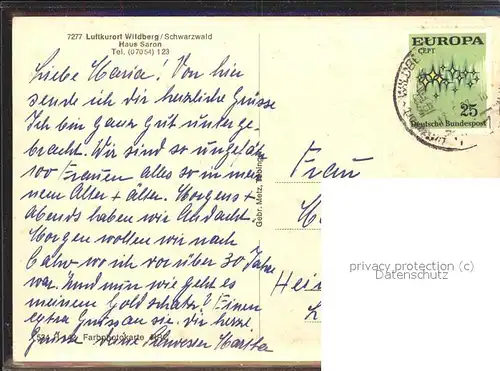 7277 Luftkurort Wildberg/Schwarzwald
Haus Saron
Tel. (07054) 123
EUROPA
CEPT
25
Deutsche Bundespost
Liebe Maria! Von hier
sende ich dir herzliche Grüsse
Ich bin ganz gut unterge-
bracht. Wir sind so ungefähr
100 Frauen alles so in mei
nem Alter + älter. Morgens +
Abends haben wir Andacht.
Morgen wollen wir nach
Calw wo ich vor über 30 Jahre
war. Und nun wie geht es
meinem Goldschatz? Einen
extra Gruss an sie. die herzl.
Grüsse deine Schwester Martha
Farbphotokarte
Gebr. Metz, Tübingen
Frau
privacy protection (c)
Datenschutz